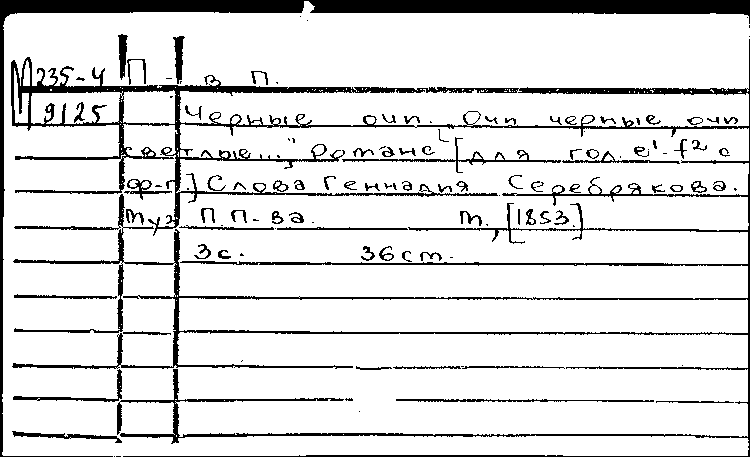 М 235-4 П - в П.
9125 Черные очи. „Очи черные, очи
светлые...", Романс [для гол. e¹-f² с
ф-п.] Слова Геннадия Серебрякова.
Муз П П-ва. М., [1853.]
3с. 36см.